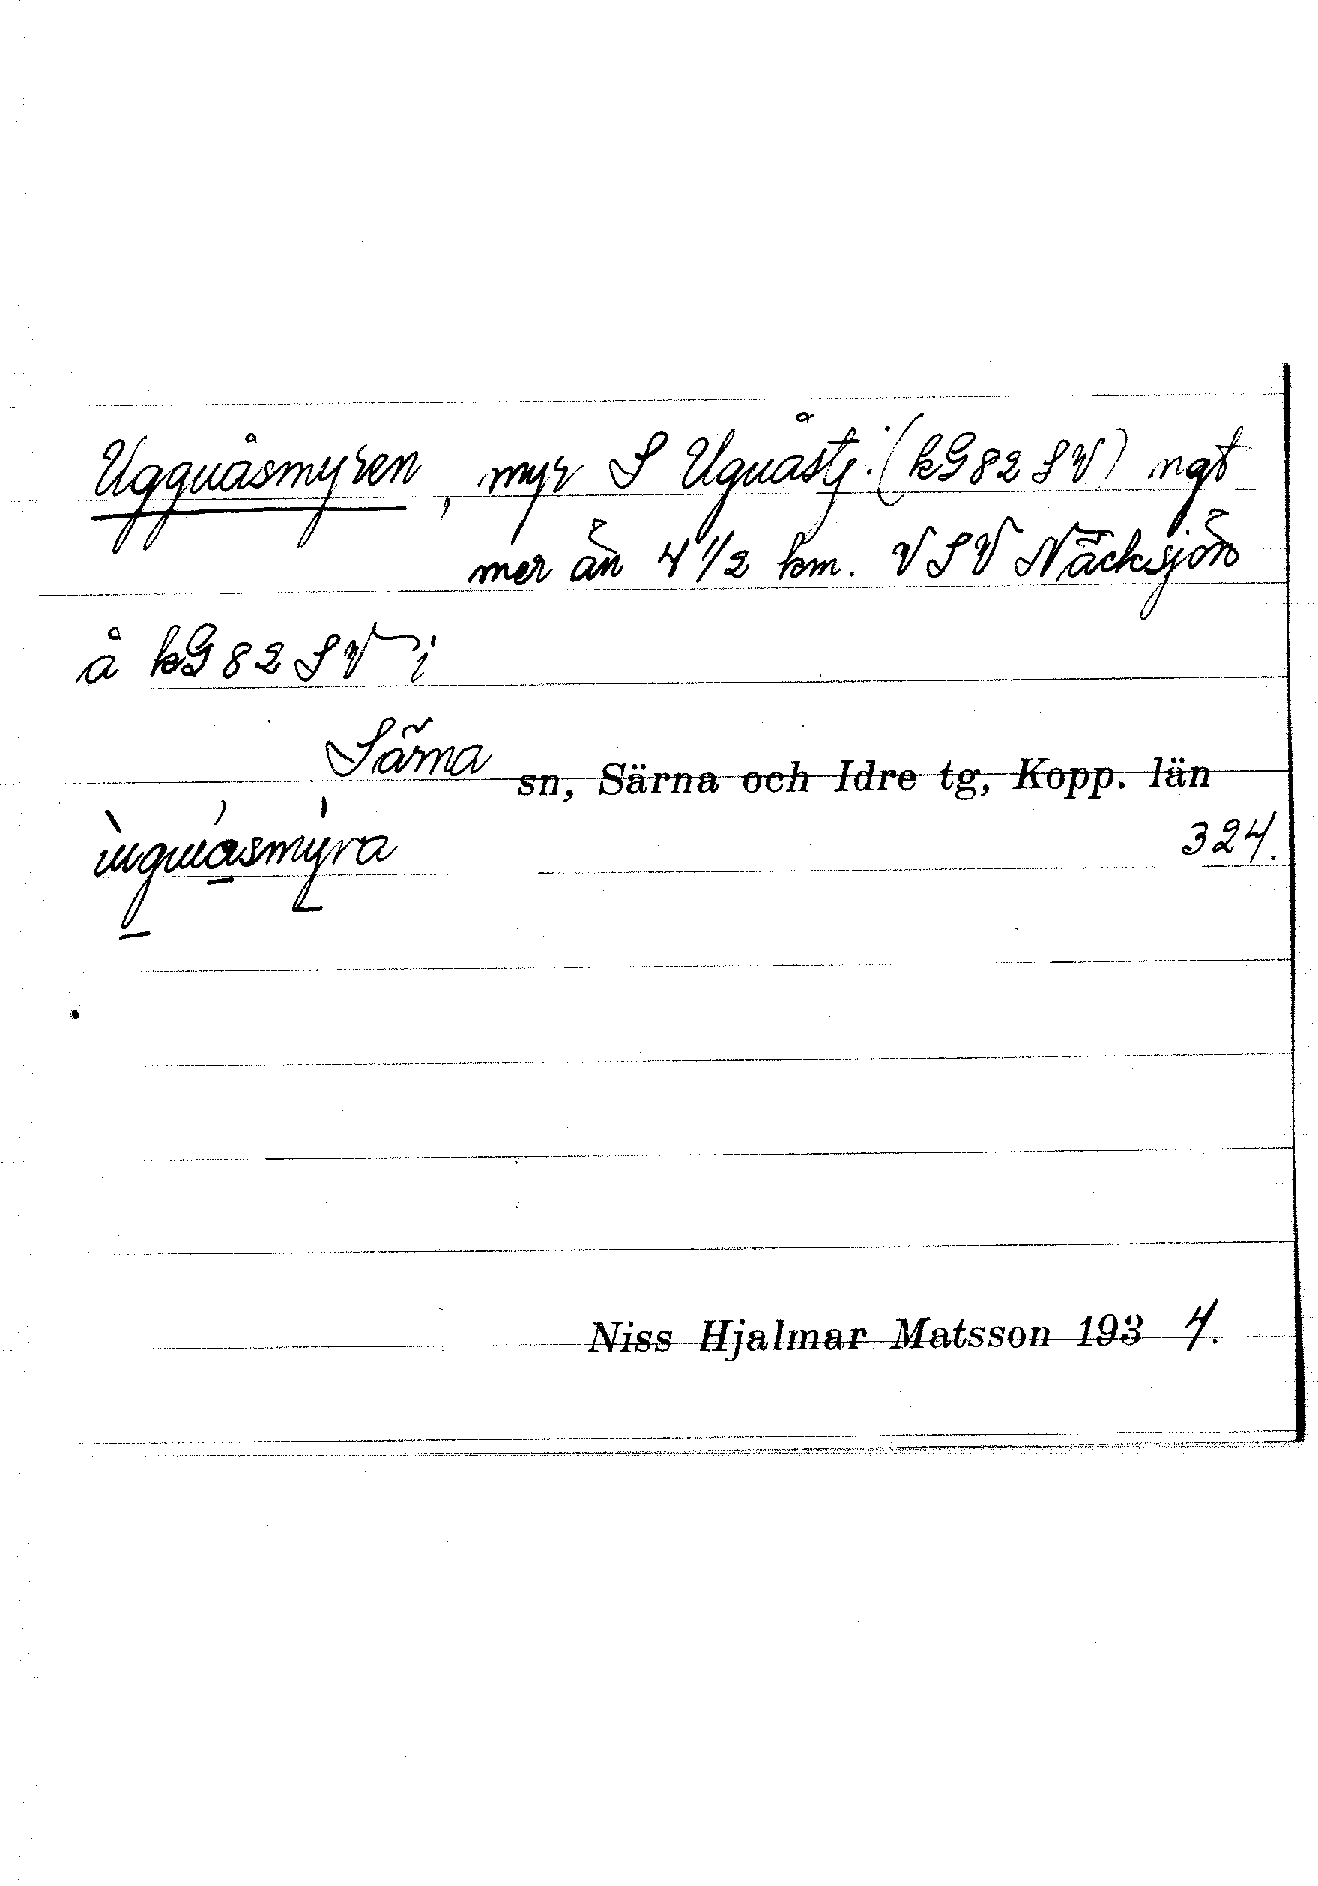 Ugguåsmyren, myr S Uguåstj. (kG82SV) ngt
mer än 4 1/2 km. VSV Näcksjön
å kG82SV i
Särna sn, Särna och Idre tg, Kopp. län
324.
Niss Hjalmar Matsson 1934.